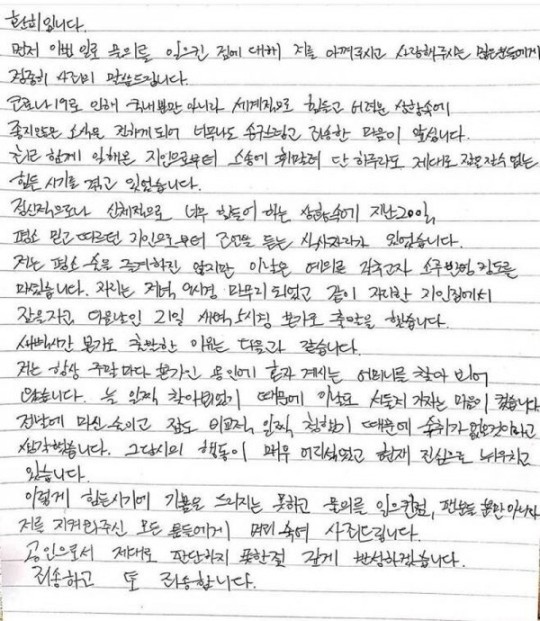 환희입니다.
먼저 이번 일로 물의를 일으킨 점에 대해 저를 아껴주시고 사랑해주시는 많은분들에게
정중히 사과의 말씀드립니다.
코로나19로 인해 국내뿐만 아니라 세계적으로 힘들고 어려운 상황속에
좋지않은 소식을 전하게 되어 너무나도 송구스럽고 죄송한 마음이 앞섭니다.
최근 함께 일해온 지인으로부터 소송에 휘말려 단 하루라도 제대로 잠을잘수 없는
힘든 시기를 겪고 있었습니다.
정신적으로나 신체적으로 너무 힘들어 하는 상황속에 지난20일,
평소 믿고 따르던 지인으로부터 조언을 듣는 식사자리가 있었습니다.
저는 평소 술을 즐겨하진 않지만 이날은 예의를 갖추고자 소주반병 정도를
마셨습니다. 자리는 저녁 9시경 마무리 되었고 같이 자리한 지인집에서
잠을자고 다음날인 21일 새벽 5시경 본가로 출발을 했습니다.
새벽시간 본가로 출발한 이유는 다음과 같습니다.
저는 항상 주말마다 본가인 용인에 혼자 계시는 어머니를 찾아 뵈어
왔습니다. 늘 일찍 찾아뵈었기 때문에 이날도 서둘러 가자는 마음이 컸습니다
전날에 마신 술이고 잠도 비교적 일찍 청했기 때문에 숙취가 없을것이라고
생각했습니다. 그당시의 행동이 매우 어리석었고 현재 진심으로 뉘우치고
있습니다.
이렇게 힘든시기에 기쁨을 드리지는 못하고 물의를 일으킨점, 팬분들 뿐만아니라
저를 지켜봐주신 모든 분들에게 머리 숙여 사죄드립니다.
공인으로서 제대로 판단하지 못한점 깊게 반성하겠습니다.
죄송하고 또 죄송합니다.